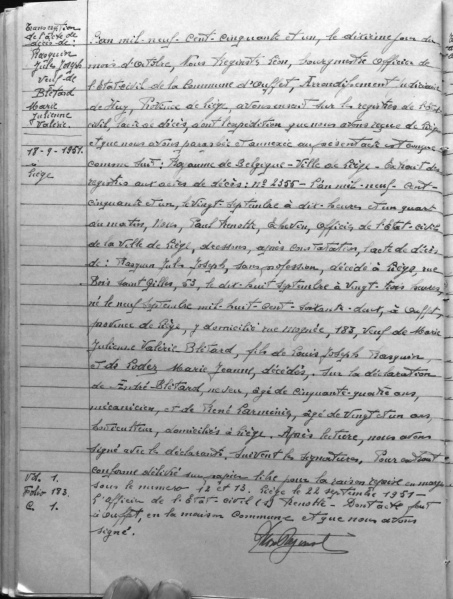 Transcription
de l'acte de
décès de:
Rasquin
Jules Joseph
veuf de
Blétard
Marie
Julienne
Valérie.
18-9-1951.
à
Liège
L'an mil-neuf-cent-cinquante et un, le dixième jour du
mois d'Octobre, Nous Léon, bourgmestre Officier de
l'Etat civil de la Commune d'Ouffet, Arrondissement judiciaire
de Huy, Province de Liège, avons inscrit sur les registres de l'état
civil, l'acte de décès, dont l'expédition que nous avons reçue de Liège
et que nous avons paraphée et annexée au présent acte est conçue
comme suit: Royaume de Belgique - Ville de Liège - Extrait des
registres aux actes de décès: N° 2355 - L'an mil-neuf-cent-
cinquante et un, le vingt septembre à dix-heures et un quart
du matin, Nous, Paul Renotte, Echevin, Officier de l'Etat-civil
de la Ville de Liège, dressons, après constatation, l'acte de décès
de: Rasquin Jules Joseph, sans profession, décédé à Liège, rue
Bois Saint Gilles, 53, le dix-huit septembre à vingt trois heures,
né le neuf septembre mil-huit-cent-soixante-douze, à Ouffet,
province de Liège, y domicilié rue 183, veuf de Marie
Julienne Valérie Blétard, fils de Louis Joseph Rasquin,
et de Marie Jeanne, décédés, sur la déclaration
de André Blétard, neveu, âgé de cinquante-quatre ans,
mécanicien, et de René âgé de vingt et un ans,
domiciliés à Liège. Après lecture, nous avons
signé avec le déclarants, suivent les signatures. Pour extrait
conforme délivré sur papier libre pour la raison reprise en marge
sous le numéro 12 et 13. Liège le 22 septembre 1951 -
L'officier de l'Etat-civil (s) Renotte - Dont acte fait
à Ouffet, en la maison Commune et que nous avons
signé.
Vol. 1.
Folio 183.
C. 1.